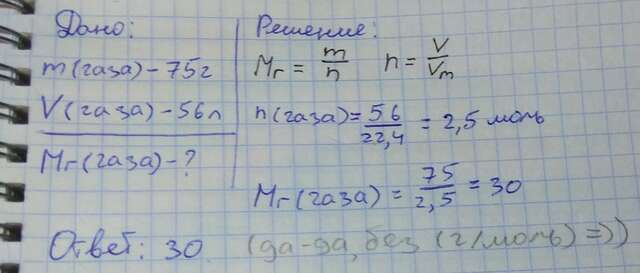 Дано:
m(газа) - 75г
V(газа) - 56л
Mr(газа) - ?
Решение:
Mr = m/n n = V/Vm
n(газа) = 56/22,4 = 2,5 моль
Mr(газа) = 75/2,5 = 30
Ответ: 30 (да-да, без (г/моль) =))